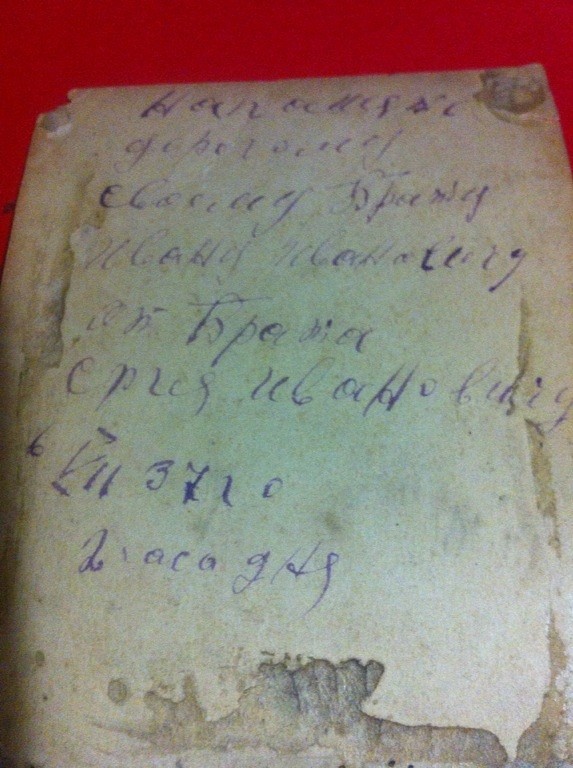 На память
дорогому
своему Брату
Ивану Ивановичу
от Брата
Иванович
6 VII 37 го
2 часа дня